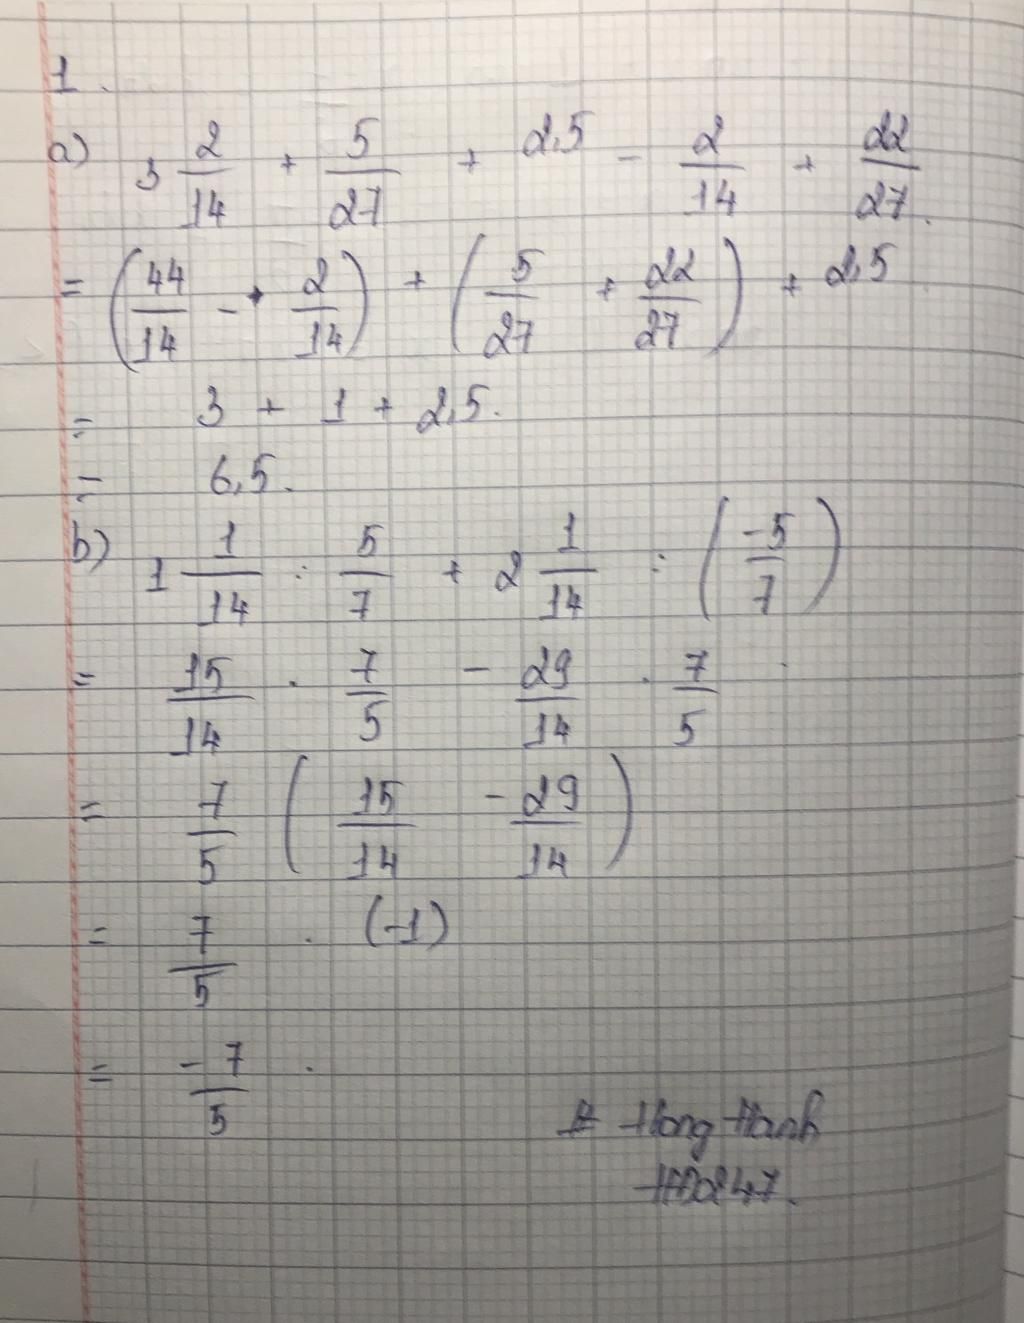 1.
a) 3 2/14 + 5/27 + 2,5 - 2/14 + 22/27.
= (44/14 - 2/14) + (5/27 + 22/27) + 2,5
= 3 + 1 + 2,5.
= 6,5.
b) 1 1/14 : 5/7 + 2 1/14 : (-5/7)
= 15/14 . 7/5 - 29/14 . 7/5
= 7/5 (15/14 - 29/14)
= 7/5 . (-1)
= -7/5.
# Hong Hanh
247.